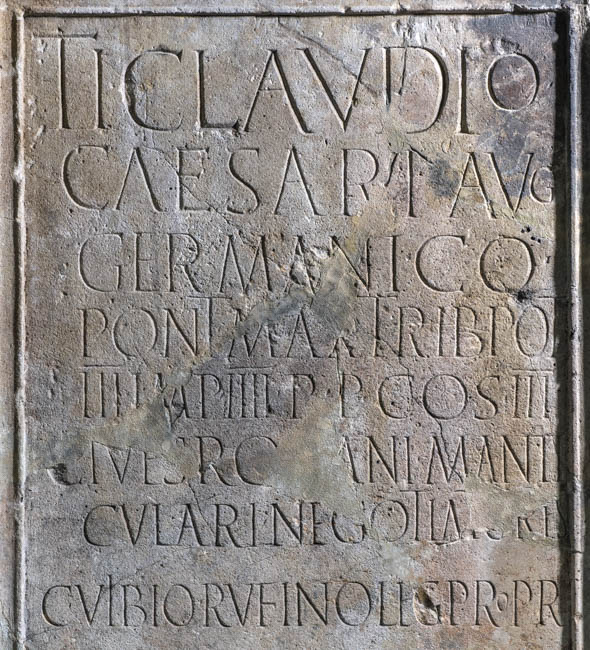 TI CLAVDIO
CAESARI AVG
GERMANICO
PONT MAX TRIB POT
III IMP IIII P P COS III
CIVES ROMANI MANTI
CVLARI NEGOTIATORES
C VIBIO RVFINO LEG PRO PR